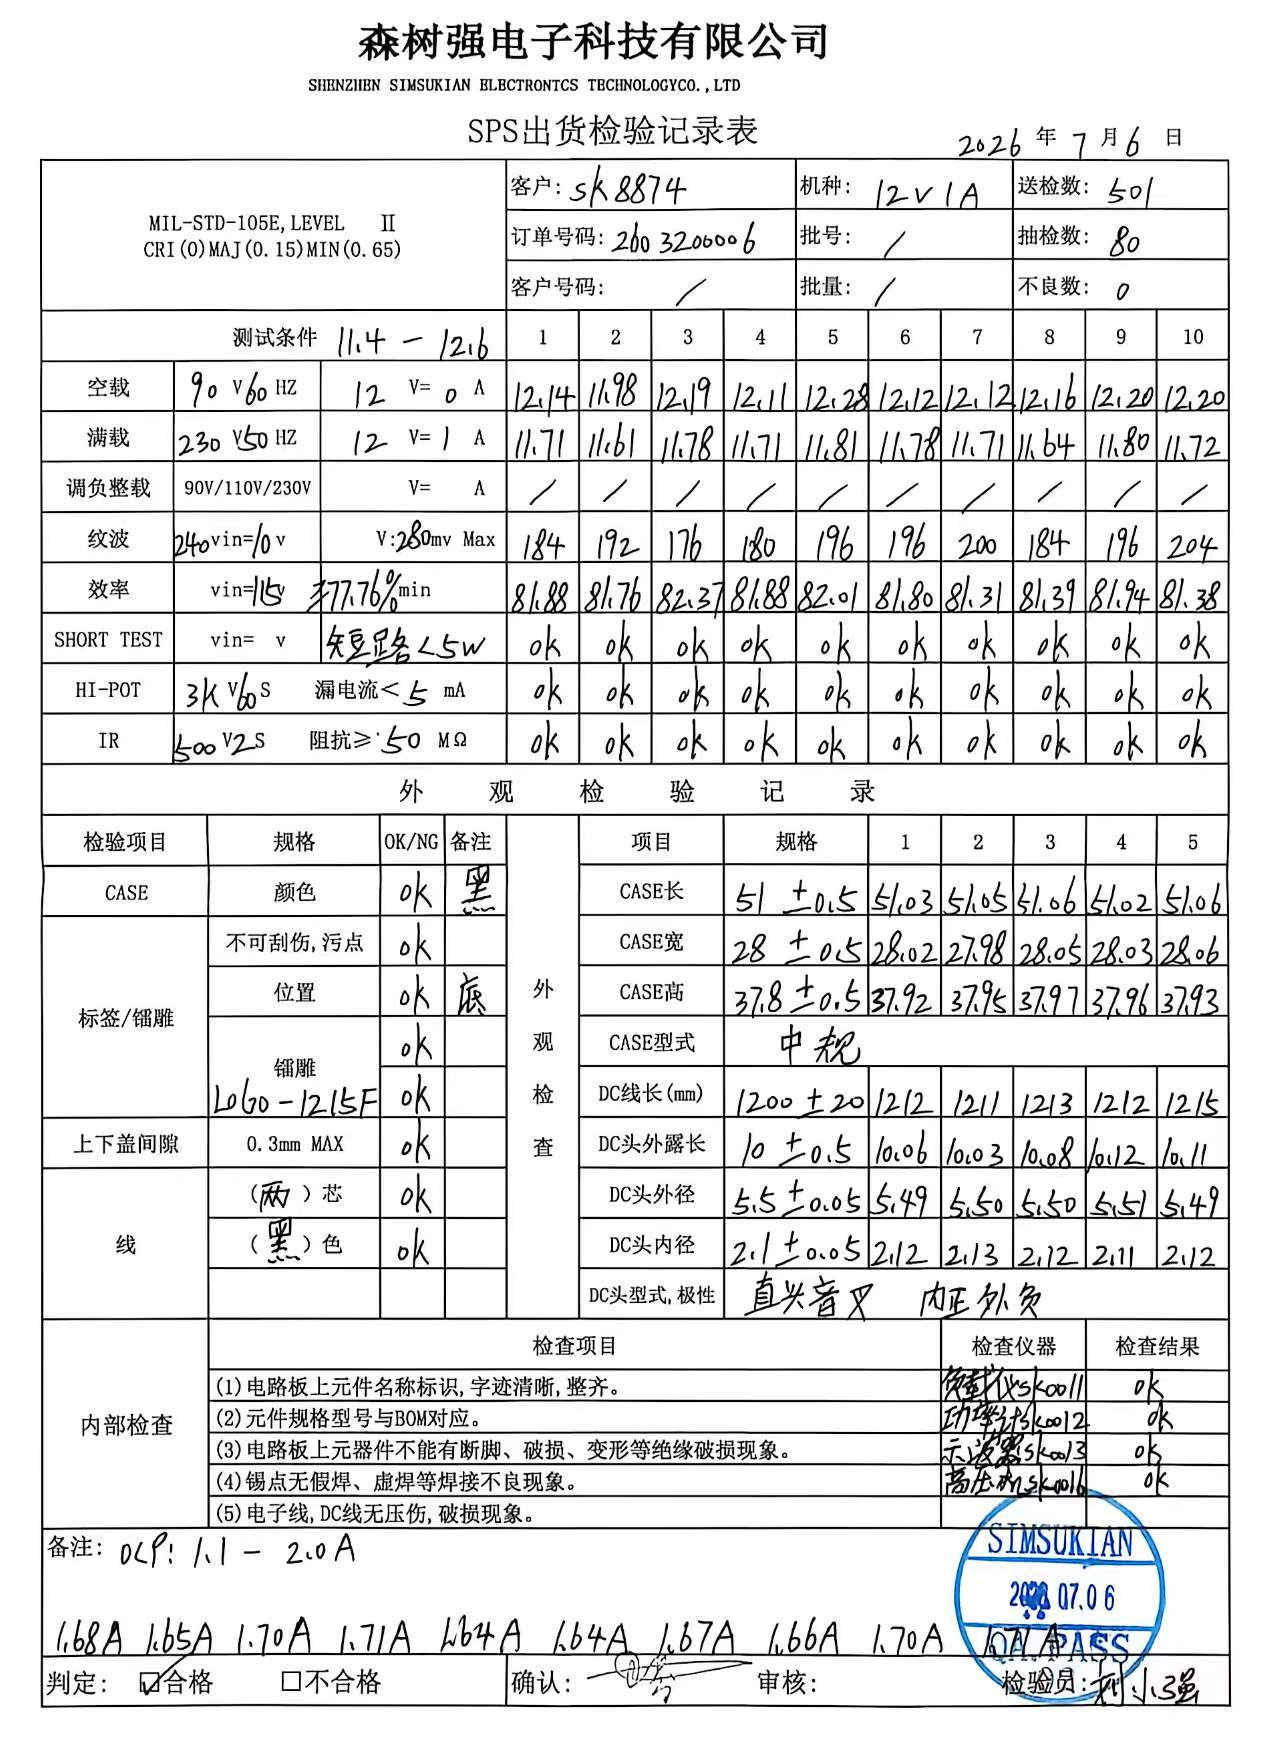 森树强电子科技有限公司
SHENZHEN SIMSUKIAN ELECTRONTCS TECHNOLOGYCO.,LTD
SPS出货检验记录表
2026 年 7 月 6 日
MIL-STD-105E,LEVEL Ⅱ
CRI(0)MAJ(0.15)MIN(0.65)
客户: sk8874 机种: 12V1A 送检数: 501
订单号码: 2603200006 批号: / 抽检数: 80
客户号码: / 批量: / 不良数: 0
测试条件 11.4 - 12.6 1 2 3 4 5 6 7 8 9 10
空载 90 V 60 HZ 12 V= 0 A 12.14 11.98 12.19 12.11 12.28 12.12 12.12 12.16 12.20 12.20
满载 230 V 50 HZ 12 V= 1 A 11.71 11.61 11.78 11.71 11.81 11.78 11.71 11.64 11.80 11.72
调负整载 90V/110V/230V V= A / / / / / / / / / /
纹波 240 vin=10 v V:280mv Max 184 192 176 180 196 196 200 184 196 204
效率 vin=115v ≥77.76%min 81.88 81.76 82.37 81.88 82.01 81.80 81.31 81.39 81.94 81.38
SHORT TEST vin= v 短路<5W ok ok ok ok ok ok ok ok ok ok
HI-POT 3K V 60 S 漏电流< 5 mA ok ok ok ok ok ok ok ok ok ok
IR 500 V 2 S 阻抗≥ 50 MΩ ok ok ok ok ok ok ok ok ok ok
外 观 检 验 记 录
检验项目 规格 OK/NG 备注 外观检查 项目 规格 1 2 3 4 5
CASE 颜色 ok 黑 CASE长 51 ±0.5 51.03 51.05 51.06 51.02 51.06
标签/镭雕 不可刮伤,污点 ok CASE宽 28 ±0.5 28.02 27.98 28.05 28.03 28.06
位置 ok 底 CASE高 37.8 ±0.5 37.92 37.95 37.97 37.96 37.93
镭雕 ok CASE型式 中规
LOGO-1215F ok DC线长(mm) 1200 ±20 1212 1211 1213 1212 1215
上下盖间隙 0.3mm MAX ok DC头外露长 10 ±0.5 10.06 10.03 10.08 10.12 10.11
线 (两)芯 ok DC头外径 5.5 ±0.05 5.49 5.50 5.50 5.51 5.49
(黑)色 ok DC头内径 2.1 ±0.05 2.12 2.13 2.12 2.11 2.12
DC头型式,极性 直头音叉 内正外负
内部检查 检查项目 检查仪器 检查结果
(1)电路板上元件名称标识,字迹清晰,整齐。 负载仪sk0011 ok
(2)元件规格型号与BOM对应。 功率计sk0012 ok
(3)电路板上元器件不能有断脚、破损、变形等绝缘破损现象。 示波器sk0013 ok
(4)锡点无假焊、虚焊等焊接不良现象。 高压机sk0016 ok
(5)电子线,DC线无压伤,破损现象。
备注: OCP: 1.1 - 2.0A
SIMSUKIAN
07.06
QA PASS
1.68A 1.65A 1.70A 1.71A 1.64A 1.64A 1.67A 1.66A 1.70A 1.71A
判定: ☑合格 □不合格 确认: 审核: 检验员: 刘小强